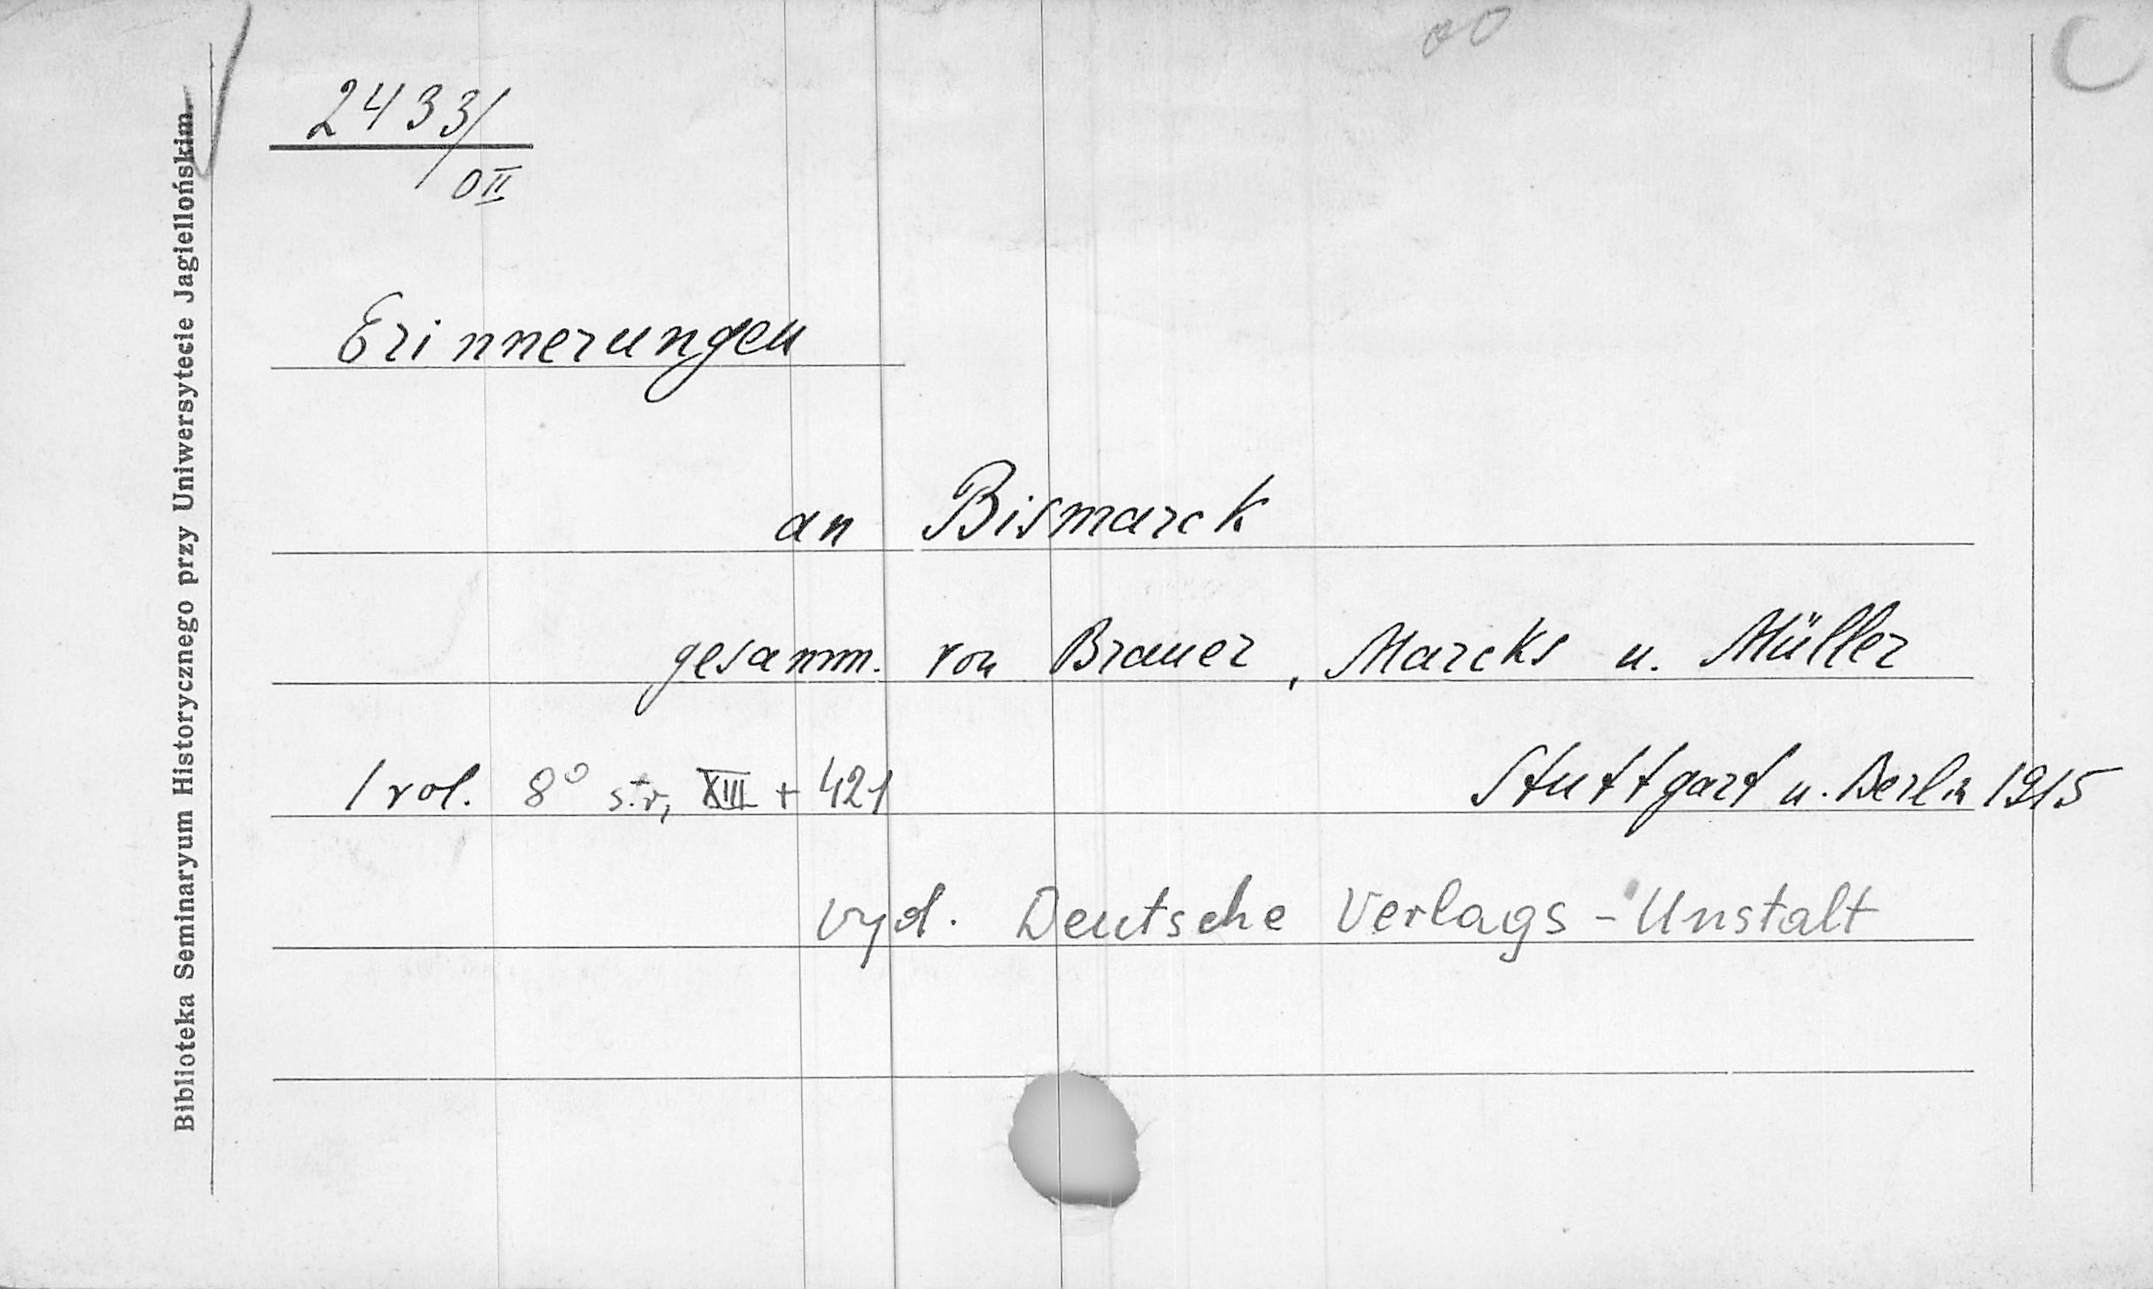 Biblioteka Seminaryum Historycznego przy Uniwersytecie Jagiellońskim.
2433/
OII
Erinnerungen
an Bismarck
gesamm. von Brauer, Marcks u. Müller
1 vol. 8° str, XIII + 421 Stuttgart u. Berlin 1915
vyd. Deutsche Verlags-Unstalt